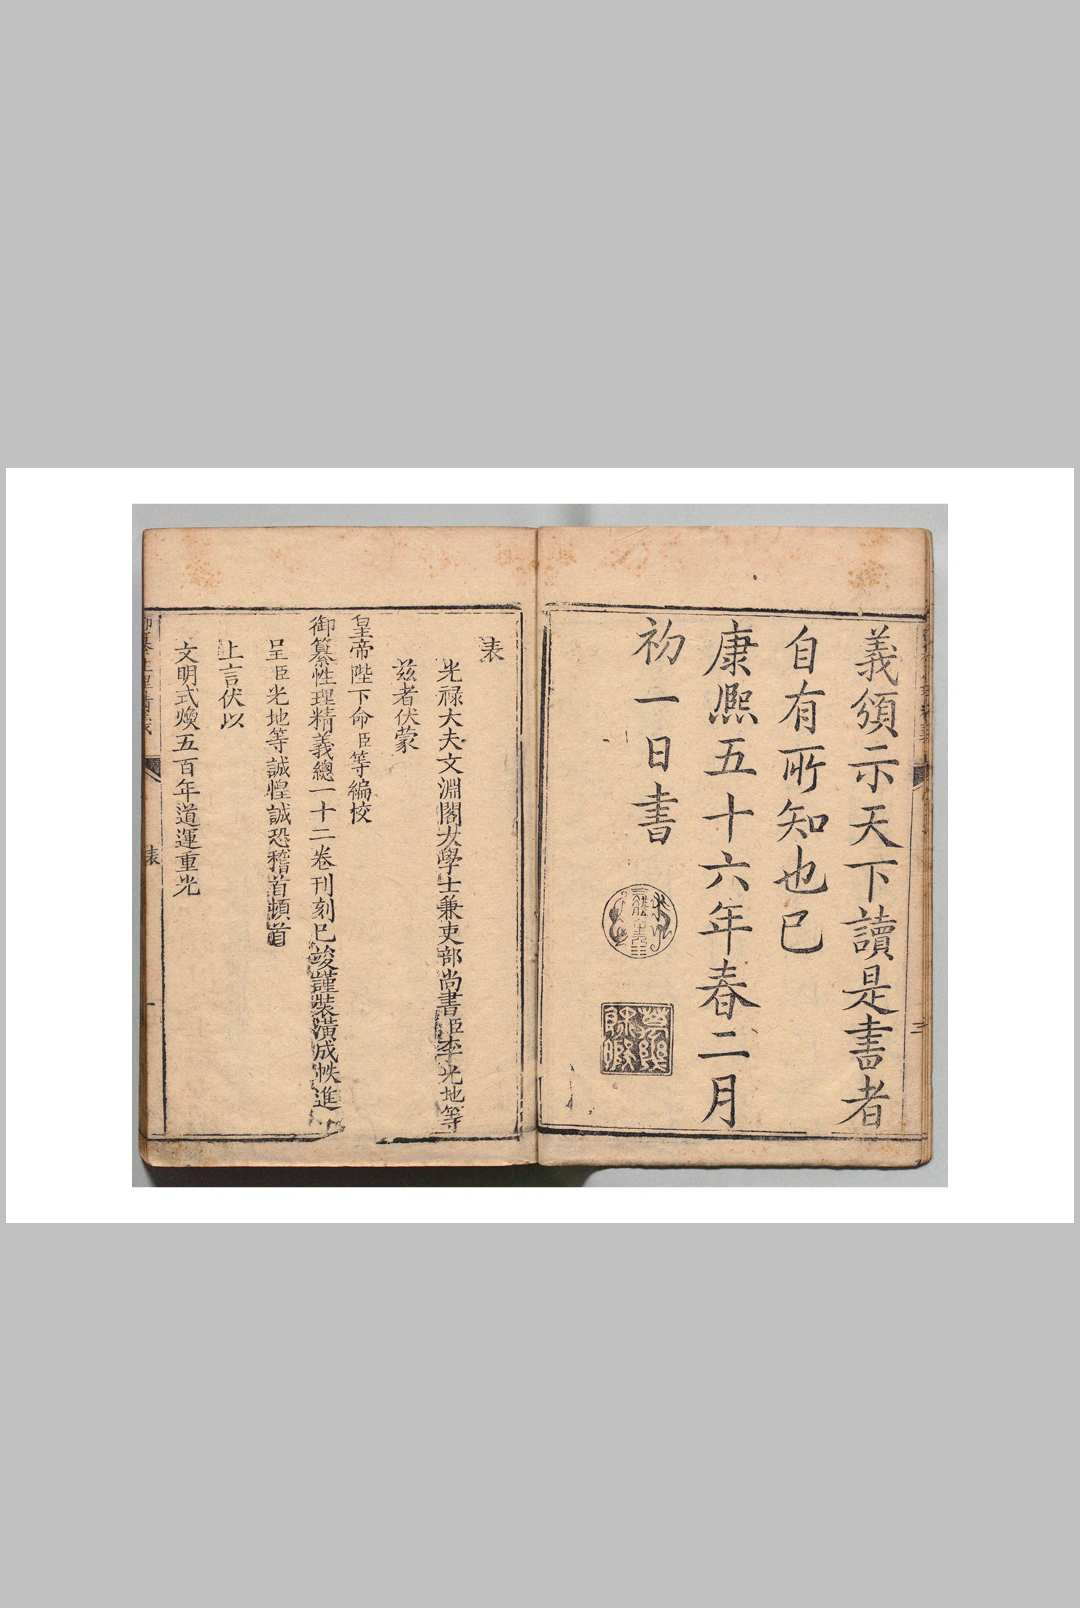 義頒示天下讀是書者
自有所知也已
康熙五十六年春二月
初一日書
表
光祿大夫文淵閣大學士兼吏部尚書臣李光地等
茲者伏蒙
皇帝陛下命臣等編校
御纂性理精義總一十二卷刊刻已竣謹裝潢成帙進
呈臣光地等誠惶誠恐稽首頓首
上言伏以
文明式煥五百年道運重光
表